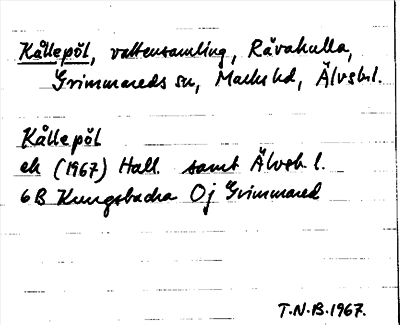 Kållepöl, vattensamling, Råvakulla,
Grimmareds sn, Marks hd, Älvsb.l.
Kållepöl
ek (1967) Hall. samt Älvsb. l.
6B Kungsbacka 0j Grimmared
T.N.B. 1967.